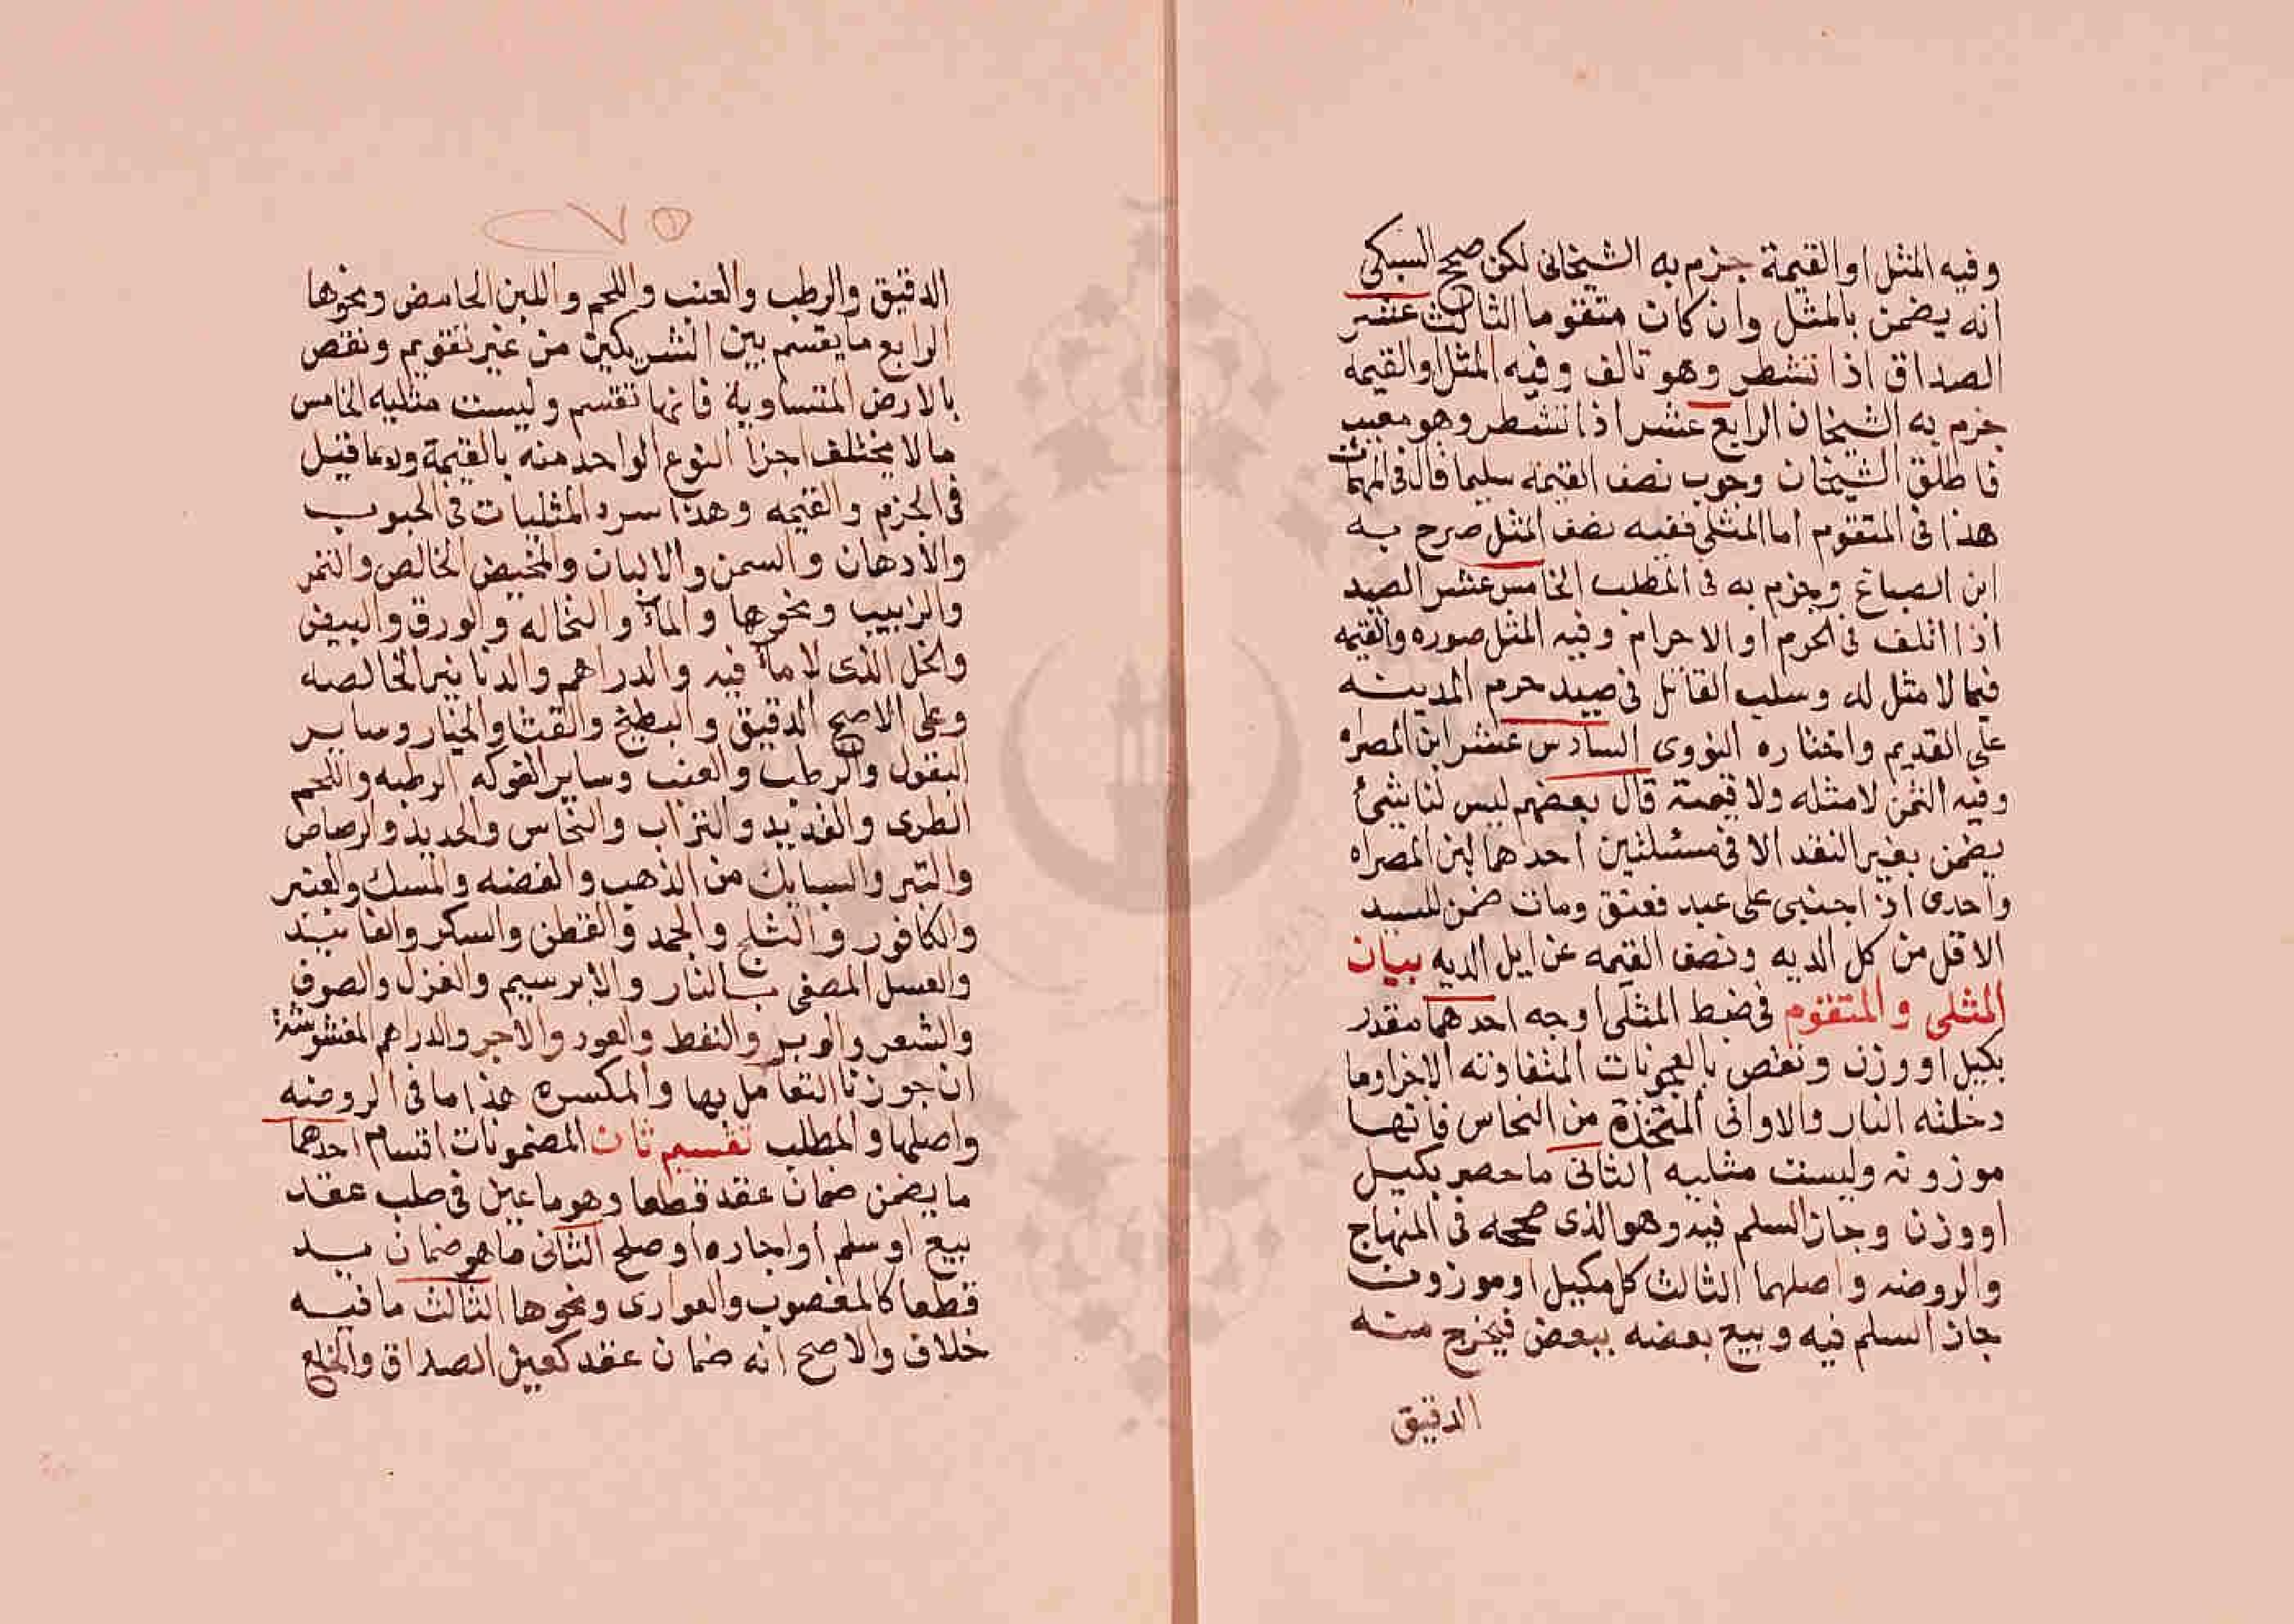 وفيه المثل او القيمة جزم به الشيخان لكن صحح السبكى
انه يضمن بالمثل وان كان متقوما الثالث عشر
الصداق اذا تشطر وهو تالف وفيه المثل او القيمه
جزم به الشيخان الرابع عشر اذا تشطر وهو معيب
فاطلق الشيخان وجوب نصف القيمه سليما قال فى المهمات
هذا فى المتقوم اما المثلى ففيه نصف المثل صرح به
ابن الصباغ وجزم به فى المطلب الخامس عشر الصيد
اذا اتلف فى الحرم او الاحرام وفيه المثل صوره والقيمه
فيما لا مثل له وسلب القاتل فى صيد حرم المدينه
على القديم واختاره النووى السادس عشر لبن المصراه
وفيه التمر لا مثله ولا قيمة قال بعضهم ليس لنا شئ
يضمن بغير النقد الا فى مسئلتين احدهما لبن المصراه
واخرى اذا جنى على عبد فعتق ومات ضمن للسيد
الاقل من كل الديه ونصف القيمه من ابل الديه بيان
المثلى والمتقوم فى ضبط المثلى اوجه احدهما مقدر
بكيل او وزن ونقض بالمعجونات المتفاوته الاجزا وما
دخلته النار والاوانى المتخذة من النحاس فانها
موزونه وليست مثليه الثانى ما حصر بكيل
او وزن وجاز السلم فيه وهو الذى صححه فى المنهاج
والروضه واصلهما الثالث كل مكيل او موزون
جاز السلم فيه وبيع بعضه ببعض فيخرج منه
الدقيق
٢٧٥
الدقيق والرطب والعنب واللحم واللبن الحامض ونحوها
الرابع ما يقسم بين الشريكين من غير تقويم ونقض
بالارض المتساوية فانها تقسم وليست مثليه الخامس
ما لا يختلف اجزا النوع الواحد منه بالقيمة وربما قيل
فى الجرم والقيمه وهذا سرد المثليات فى الحبوب
والادهان والسمن والالبان والمخيض الخالص والتمر
والزبيب ونحوها والماء والنخاله والورق والبيض
والخل الذى لا ماء فيه والدراهم والدنانير الخالصه
وعلى الاصح الدقيق والبطيخ والقثا والخيار وساير
البقول والرطب والعنب وساير الفوكه الرطبه واللحم
الطرى والقديد والتراب والنحاس والحديد والرصاص
والتبر والسبايك من الذهب والفضه والمسك والعنبر
والكافور والثلج والجمد والقطن والسكر والفانيد
والعسل المصفى بالنار والابرسيم والغزل والصوف
والشعر والوبر والنفط والعود والاجر والدراهم المغشوشة
ان جوزنا التعامل بها والمكسره هذا ما فى الروضه
واصلها والمطلب تقسيم ثان المضمونات اقسام احدها
ما يضمن ضمان عقد قطعا وهو ما عين فى صلب عقد
بيع او سلم او اجاره او صلح الثانى ما هو ضمان يد
قطعا كالمغصوب والعوارى ونحوها الثالث ما فيه
خلاف والاصح انه ضمان عقد كعين الصداق والخلع